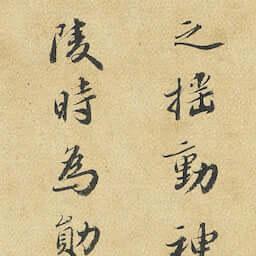 之搖動神
陵時為勛